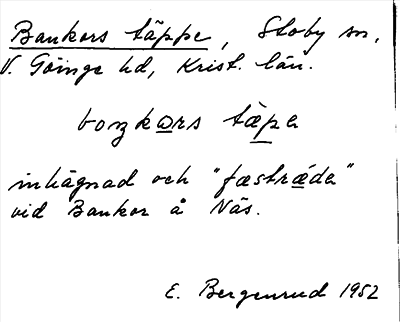 Bankors täppe, Stoby sn,
V. Göinge hd, Krist. län.
boŋkωrs täpa
inhägnad och "fæstræda"
vid Bankor å Näs.
E. Bergenrud 1952